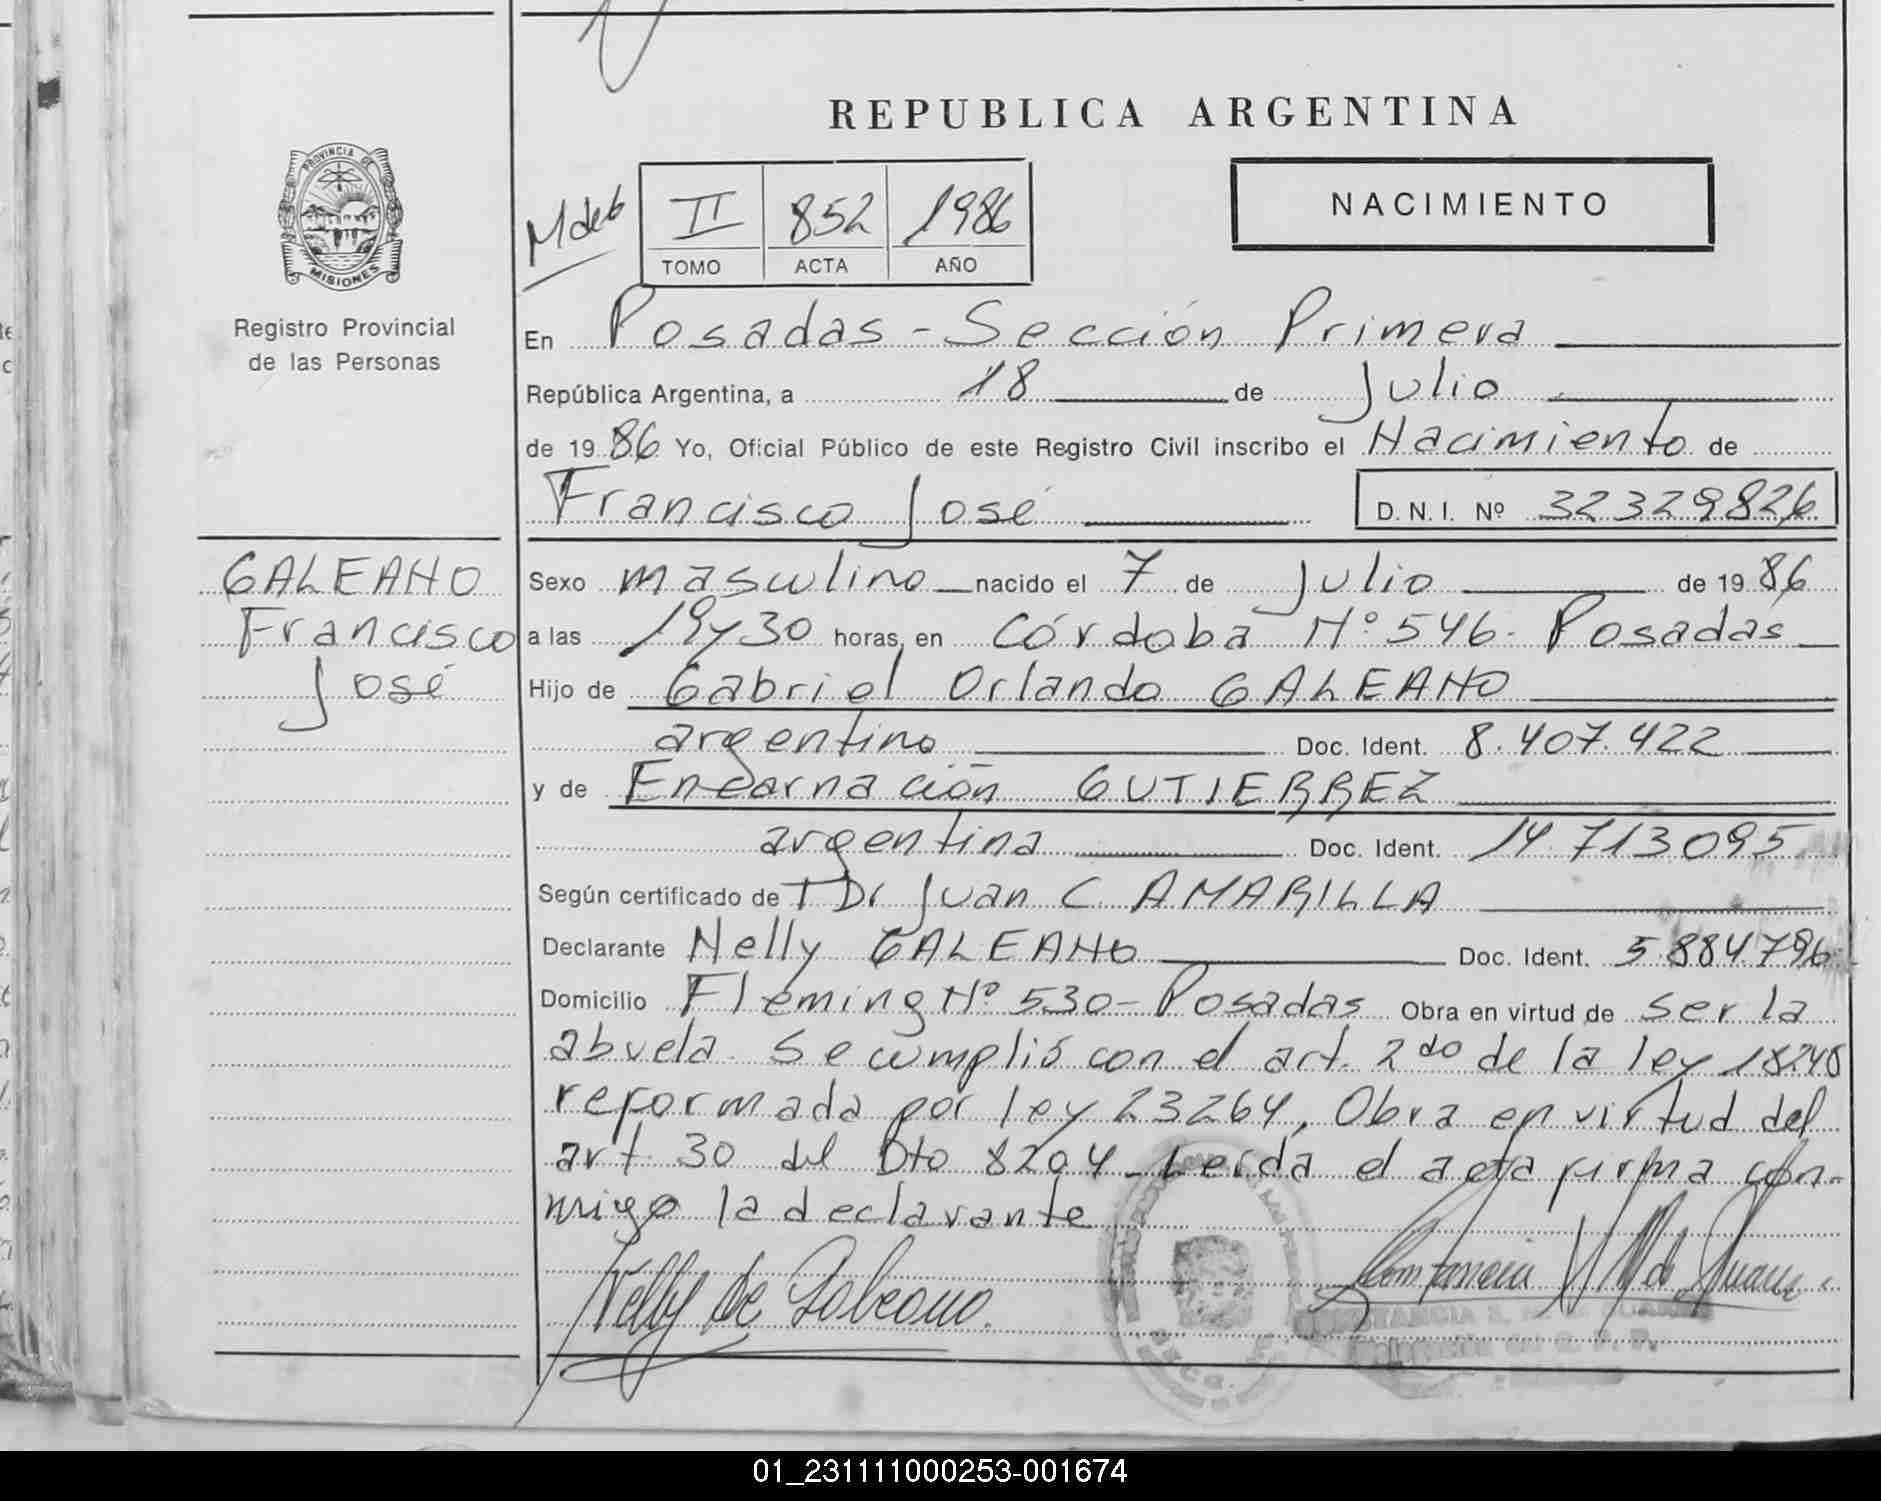 REPUBLICA ARGENTINA
PROVINCIA DE
MISIONES
Registro Provincial
de las Personas
II 852 1986
TOMO ACTA AÑO
NACIMIENTO
En Posadas - Sección Primera
República Argentina, a 18 de Julio
de 1986 Yo, Oficial Público de este Registro Civil inscribo el Nacimiento de
Francisco José D. N. I. Nº 32329826
GALEANO
Francisco
José
Sexo masculino nacido el 7 de Julio de 1986
a las 19y30 horas, en Córdoba Nº 546. Posadas
Hijo de Gabriel Orlando GALEANO
argentino Doc. Ident. 8.407.422
y de Encarnación GUTIERREZ
argentina Doc. Ident. 14.713.095
Según certificado de Dr Juan C. AMARILLA
Declarante Nelly GALEANO Doc. Ident. 5.884.796
Domicilio Fleming Nº 530 - Posadas Obra en virtud de ser la
abuela. Se cumplió con el art. 2do de la ley 18248
reformada por ley 23264, Obra en virtud del
art 30 del Dto 8204 - Leída el acta firma con-
migo la declarante
Nelly de Galeano.
01_231111000253-001674